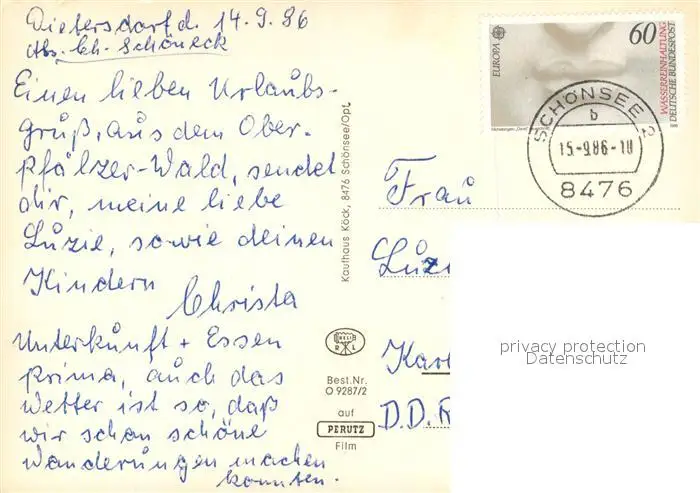 Dietersdorf d. 14.9.86
Abs. Ch. Schöneck
Einen lieben Urlaubs-
gruß, aus dem Ober-
pfälzer-Wald, sendet
dir, meine liebe
Luzie, sowie deinen
Kindern
Christa
Unterkunft + Essen
prima, auch das
Wetter ist so, daß
wir schon schöne
Wanderungen machen
konnten.
Kaufhaus Köck, 8476 Schönsee/Opf.
R L
Best.Nr.
O 9287/2
auf
PERUTZ
Film
EUROPA
60
WASSERREINHALTUNG
DEUTSCHE BUNDESPOST
SCHÖNSEE 2
b
15.-9.86-18
8476
Frau
Luzi
Kar
D.D.R
privacy protection
Datenschutz